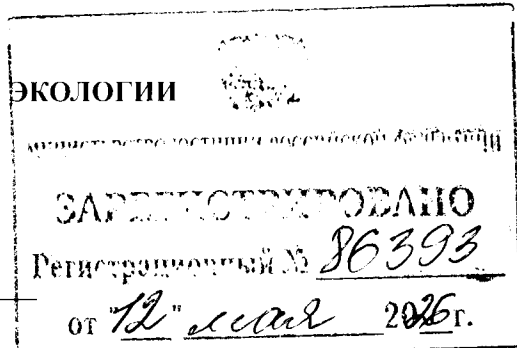 ЭКОЛОГИИ
МИНИСТЕРСТВО ЮСТИЦИИ РОССИЙСКОЙ ФЕДЕРАЦИИ
ЗАРЕГИСТРИРОВАНО
Регистрационный № 86393
от "12" мая 2026г.